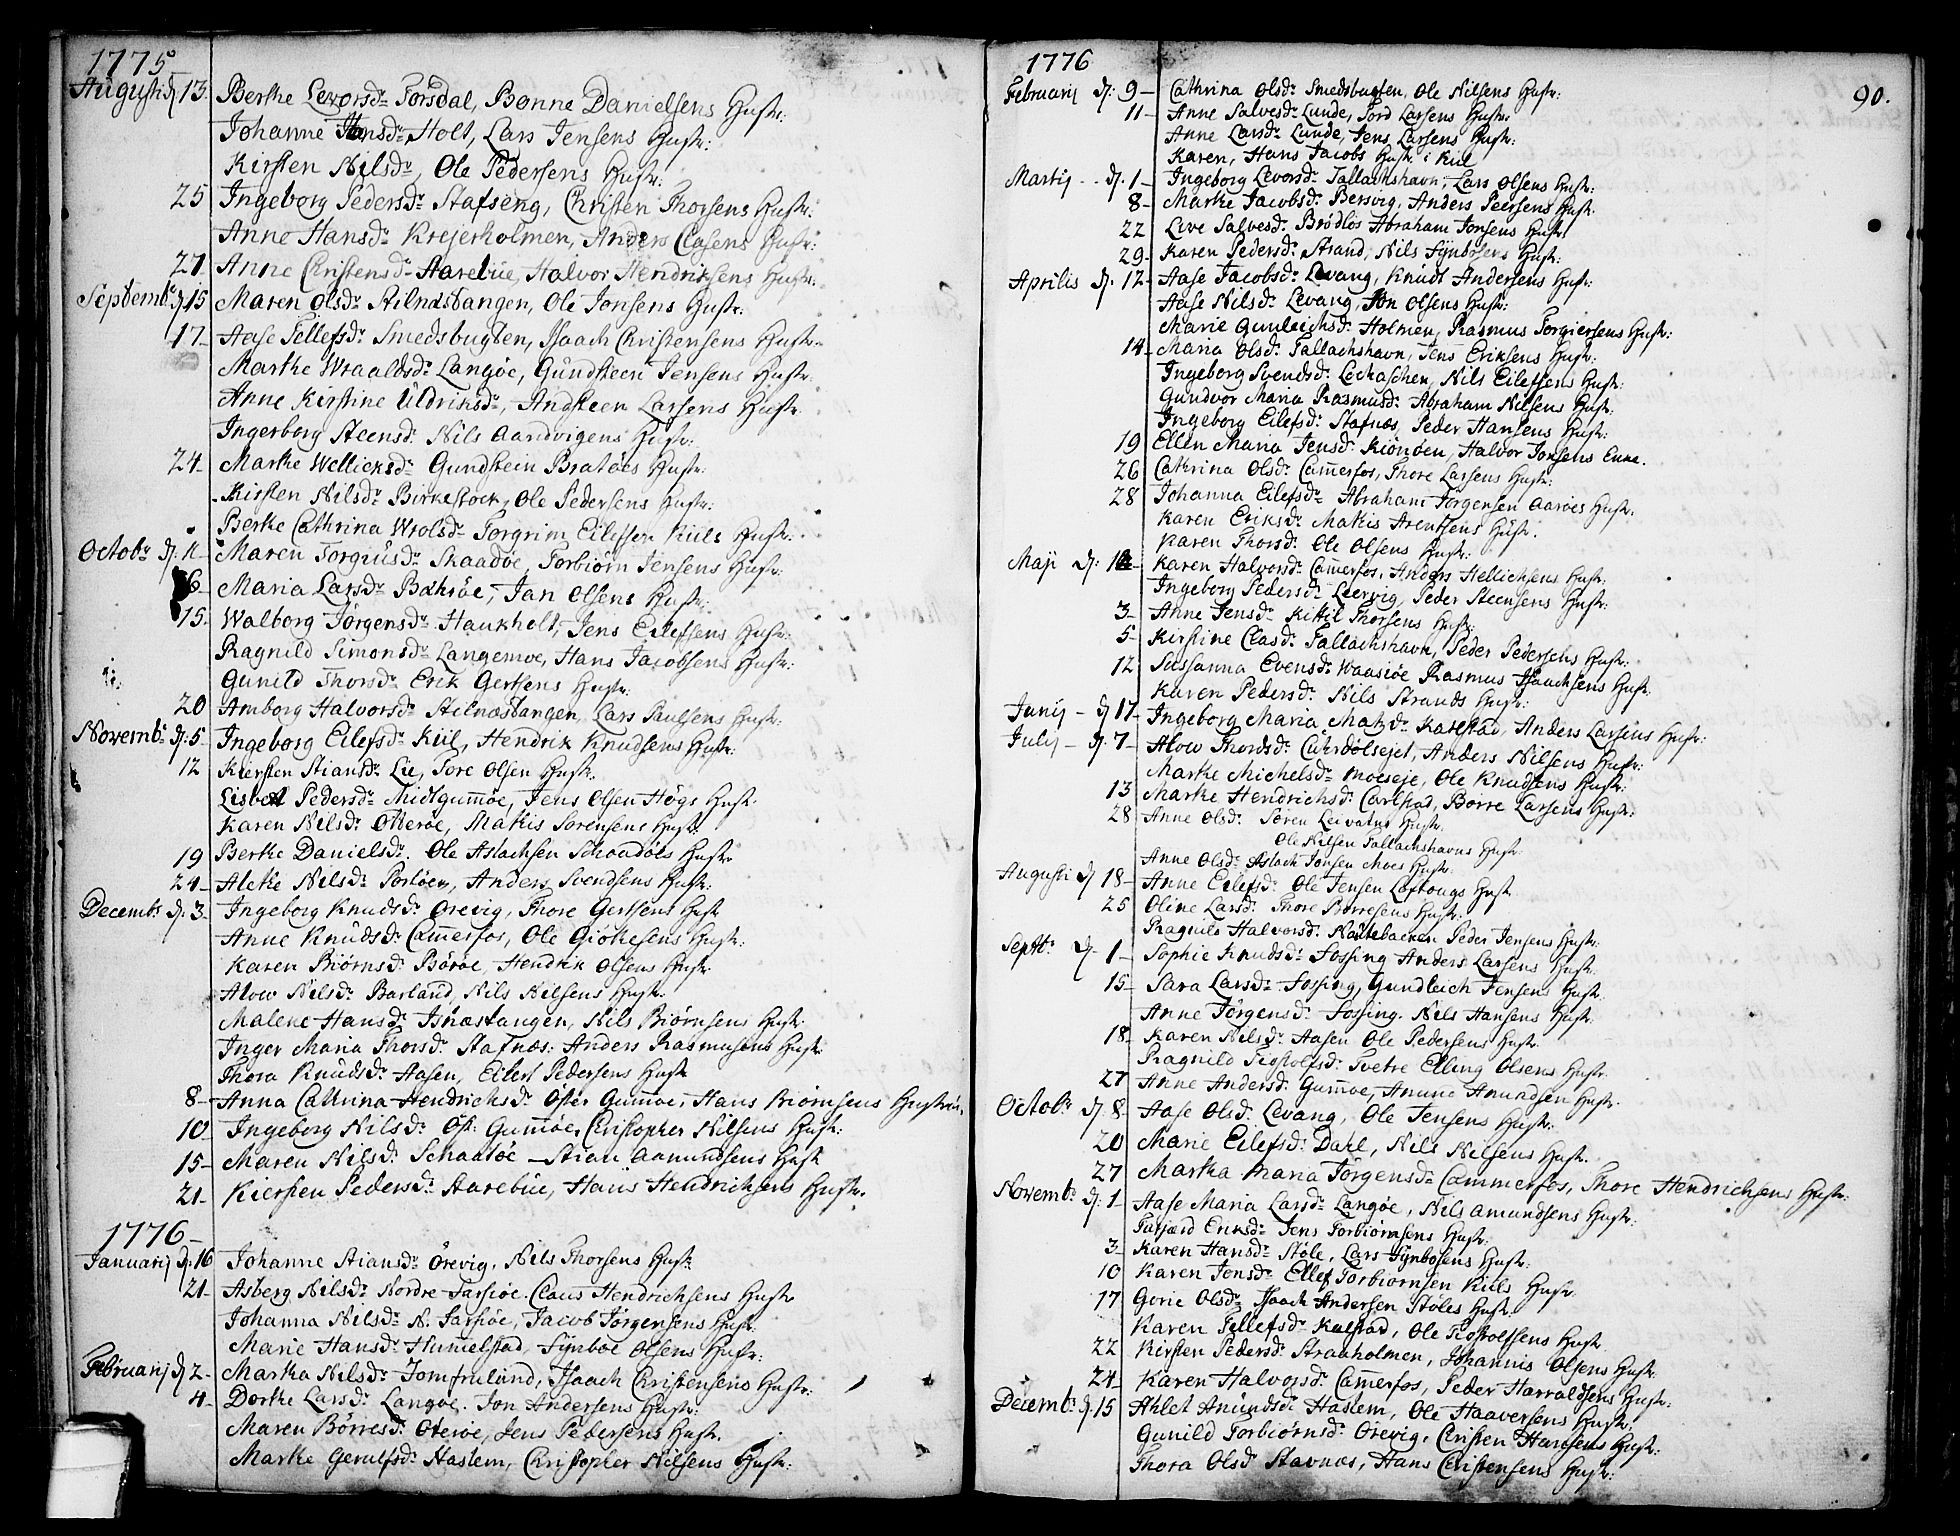 1775
Augusti d. 13. Berthe Levorsdr Torsdal, Bonne Danielsens Hustr:
Johanne Hansdr Holt, Lars Jensens Hustr:
Kirsten Nilsdr, Ole Pedersens Hustr:
25 Ingeborg Pedersdr Stafseng, Christen Thorsens Hustr:
Anne Hansdr Krejerholmen, Anders Clasens Hustr:
27 Anne Christensdr Aarebûe, Halvor Hendriksens Hustr:
Septembr d. 15 Maren Olsdr Stilnæstangen, Ole Jonsens Hustr:
17- Aase Tellefsdr Smedsbugten, Isaach Christensens Hustr:
Marthe Wraaldsdr Langöe, Gûndsteen Jensens Hustr.
Anne Kirstine Uldriksdr, Andsteen Larsens Hustr.
Ingerborg Steensdr Nils Aandvigens Hustr:
24- Marthe Wellieksdr Gundstein Bratöes Hustr:
Kirsten Nilsdr Birkestock, Ole Pedersens Hustr:
Berthe Cathrina Wrolsdr Torgrim Eilefsen Kiils Hustr:
Octobr d. Maren Torgiûsdr Skaadöe, Torbiörn Jensens Hustr:
6- Maria Larsdr Bahröe, Jan Olsens Hustr:
15- Walborg Jörgensdr Haukholt, Jens Eilefsens Hustr:
Ragnild Simonsdr Langemoe, Hans Jacobsens Hustr:
Gunild Thorsdr Erik Gertsens Hustr:
20 Amborg Halvorsdr Stilnæstangen, Lars Paulsens Hustr:
Novembr d. 5- Ingeborg Eilefsdr Kiil, Hendrik Knudsens Hustr:
12 Kiersten Stiansdr Lie, Tore Olsen Hustr:
Lisbet Pedersdr Midtgumöe, Jens Olsen Högs Hustr.
Karen Nilsdr Otteröe, Mathis Sorensens Hustr:
19 Berthe Danielsdr. Ole Aslachsen Schaadöes Hustr.
24- Alethe Nilsdr Portöen, Anders Svendsens Hustr:
Decembr d. 3- Ingeborg Knudsdr Orevig, Thore Gertsens Hustr
Anne Knûdsdr Camerfos, Ole Giötesens Hustr:
Karen Biörnsdr Böröe, Hendrik Olsens Hustr.
Alow Nilsdr Barland, Nils Nilsens Hustr.
Malene Hansdr Isnæstangen, Nils Biörnsens Hustr.
Inger Maria Thorsdr Stafnæs. Anders Rasmusens Hustr.
Thora Knûdsdr Aasen, Eilert Pedersens Hustr
8- Anna Cathrina Hendrichsdr Öster Gumöe, Hans Biörnsens Hustrû.
10- Ingeborg Nilsdr Öst: Gumöe, Christopher Nilsens Hustr:
15- Maren Nilsdr Schaatöe Stian Aamundsens Hustr
21- Kiersten Pedersdr Aarebûe, Hans Hendrichsens Hustr.
1776-
Januarij d. 16 Johanne Stiansdr Örevig, Nils Thorsens Hustr.
21- Asberg Nilsdr Nordre Farsiöe. Claus Hendrichsens Hustr
Johanna Nilsdr N. Farsiöe, Jacob Jörgensens Hustr.
Marie Hansdr Humelstad, Synboe Olsens Hustr:
Februarij d. 2- Martha Nilsdr Jomfruland, Isaach Christensens Hustr:
4- Dorthe Larsdr Langöe. Jon Andersens Hustr:
Maren Börresdr Oteröe, Jens Pedersens Hustr.
Marthe Gerulfsdr Haslem, Christopher Nilsens Hustr:
1776
90.
Februarij d. 9- Cathrina Olsdr Smedsbugten, Ole Nilsens Hustr:
11- Anne Salvesdr Lunde, Tord Larsens Hustr.
Anne Larsdr Lunde, Jens Larsens Hustr:
Karen, Hans Jacobs Hustr i Kiil
Martij d. 1- Ingeborg Levorsdr Tallachshavn, Lars Olsens Hustr:
8- Marthe Jacobsdr Bersvig, Anders Peersens Hustr.
22 Live Salvesdr Brödlös Abraham Jonsens Hustr.
29. Karen Pedersdr Strand, Nils Synbosens Hustr:
Aprilis d. 12- Aase Jacobsdr Levang, Knûdt Andersens Hustr:
Aase Nilsdr Levang, Jon Olsens Hustr:
Marie Gunleichsdr Holmen, Rasmus Torgiersens Hustr:
14- Maria Olsdr Tallachshavn, Jens Eriksens Hustr:
Ingeborg Svendsdr Lochaschen, Nils Eilefsens Hustr:
Gundvor Maria Rasmusdr Abraham Nilsens Hustr.
Ingeborg Eilefsdr Stafnæs, Peder Hansens Hustr:
19 Ellen Maria Jensdr Kiönöen, Halvor Jonsens Enke.
26 Cathrina Olsdr Camerfos, Thore Larsens Hustr:
28 Johanna Eilefsdr Abraham Jörgensen Aaröes Hustr:
Karen Eriksdr Mathis Arentsens Hustr.
Karen Thorsdr Ole Olsens Hustr:
Maji d: Karen Halvorsdr Camerfos, Anders Hellichsens Hustr:
Ingeborg Pedersdr Leervig, Peder Steensens Hustr:
3- Anne Jensdr Kittil Thorsens Hustr:
5- Kirstine Clasdr Tallachshavn, Peder Pedersens Hustr:
12 Sussanna Evensdr Waasiöe Rasmus Isaachsens Hustr.
Karen Pedersdr Nils Strands Hustr:
Junij d. 17- Ingeborg Maria Matzdr Karlstad, Anders Larsens Hustr:
Julij d. 7- Alow Thordsdr Cûhrdölsejet, Anders Nilsens Hustr:
Marthe Michelsdr Moeseje, Ole Knudsens Hustr:
13 Marthe Hendrichsdr Carlstad, Börre Larsens Hustr:
28 Anne Olsdr Sören Hustr.
Ole Nilsen Tallachshavns Hustr.
Anne Olsdr Aslach Jonsen Moes Hustr.
Augusti d. 18- Anne Eilefsdr Ole Jensen Hustr
25 Oline Larsdr Thore Börresens Hustr:
Ragnild Halvorsdr Peder Jensens Hustr:
Septbr. d. 1- Sophie Knudsdr Fossing Anders Larsens Hustr.
15- Sara Larsdr Fossing, Gundleich Jensens Hustr
Anne Jörgensdr Fossing. Nils Hansens Hustr.
18- Karen Nilsdr Aasen Ole Pedersens Hustr.
Ragnild Tiostolfsdr Tvetre Elling Olsens Hustr.
27 Anne Andersdr Gumöe, Anund Anundsen Hustr.
Octobr d. 8- Aase Olsdr Levang, Ole Jensens Hustr:
20 Marie Eilefsdr Dahl, Nils Nilsens Hustr.
27 Martha Maria Jörgensdr Cammerfos, Thore Hendrichsens Hustr:
Novembr d. 1 Aase Maria Larsdr Langöe, Nils Amundsens Hustr:
Eriksdr Jens Torbiörnsens Hustr:
3- Karen Hansdr Stöle, Lars Synbosens Hustr:
10 Karen Jonsdr Ellef Torbiörnsen Kiils Hustr
17 Gorie Olsdr Isaach Andersen Stöles Hustr.
Karen Tellefsdr Kalstad, Ole Tiostolfsens Hustr
22 Kirsten Pedersdr Straaholmen, Johannis Olsens Hustr:
24- Karen Halvorsdr Camerfos, Peder Harraldsens Hustr:
Decembr d. 15 Ahlet Anûndsdr Haslem, Ole Haaversens Hustr:
Gunild Torbiörnsdr Orevig, Christen Hansens Hustr:
Thora Olsdr Stavnæs, Hans Christensens Hustr: